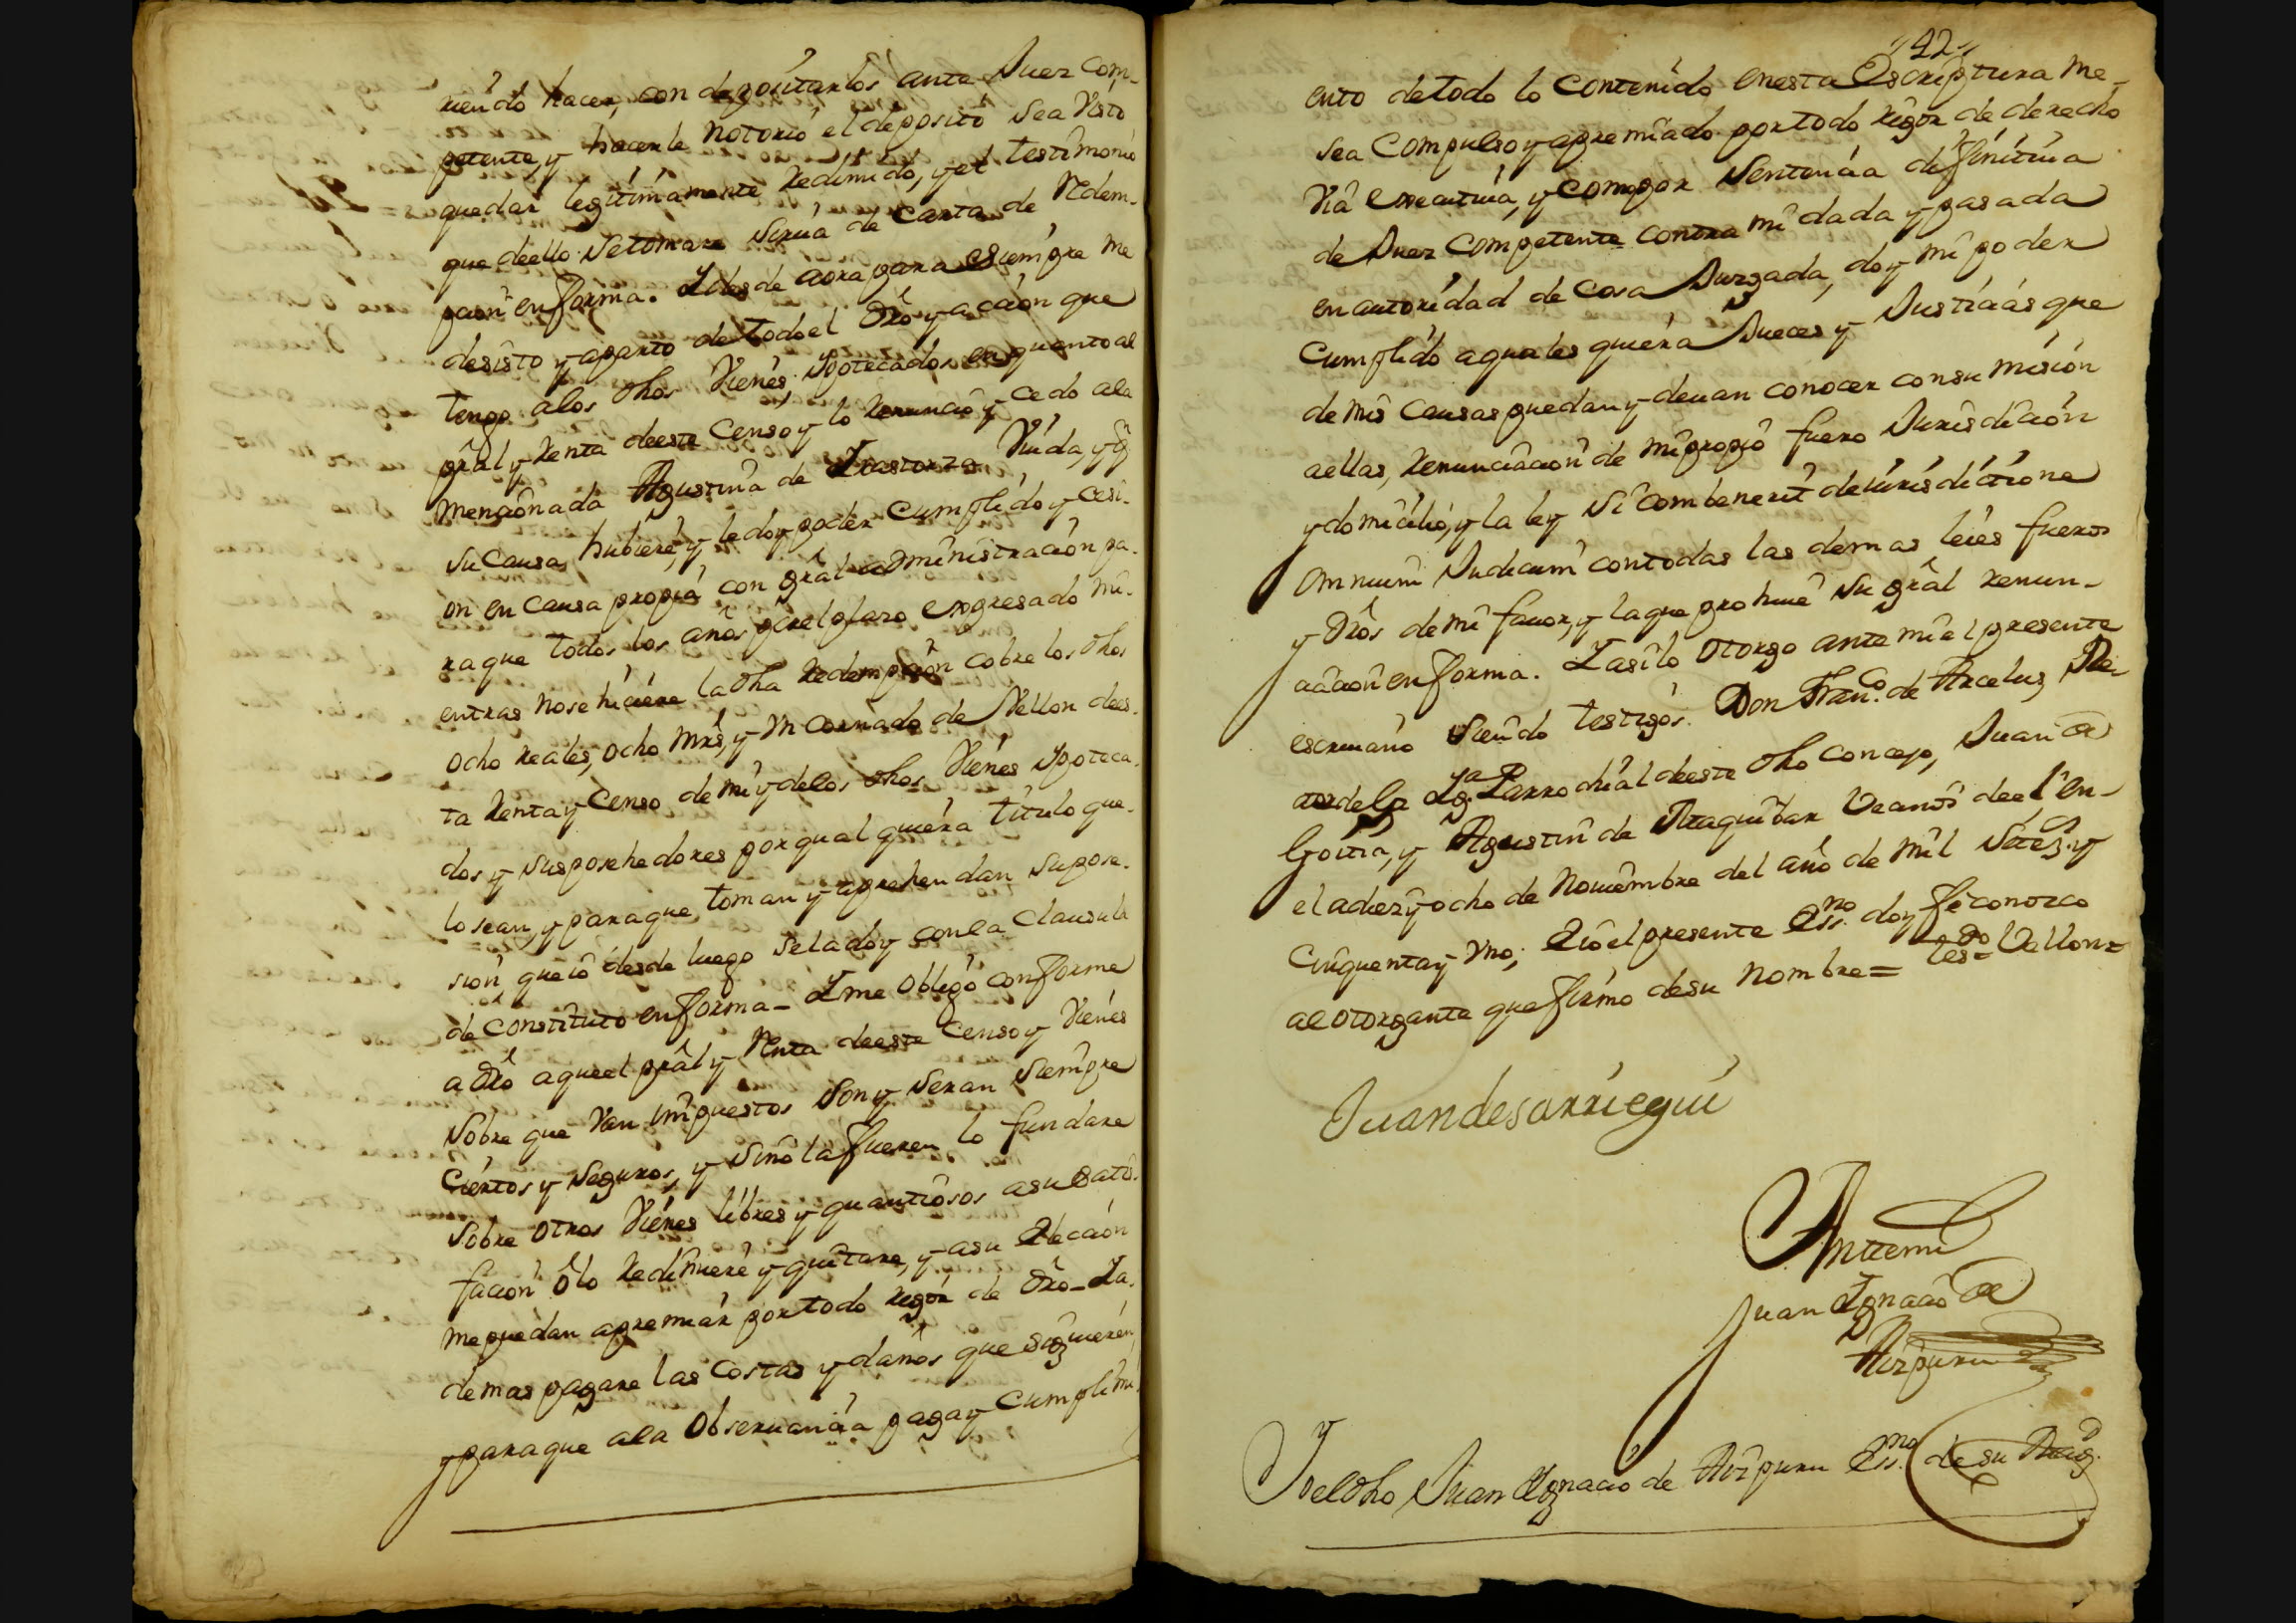 riendo hacer, con depositarlos ante Juez Com-
petente, y hacerle notorio el deposito sea Visto
quedar legitimamente redimido, y el testimonio
que dello se tomare sirua de Carta de Redem-
pcion en forma. Y desde aora para siempre me
desisto y aparto de todo el dro y accion que
tengo a los dhos Vienes Ypotecados en quanto al
pral y renta de este Censo y lo renuncio y cedo a la
mencionada Agustina de Yrastorza Viuda, y q
su Causa hubiere, y le doy poder Cumplido y Cesi-
on en Causa propia con gral administracion pa-
ra que todos los años por el plazo expresado mi-
entras no se hiciere la dha redempcion cobre los dhos
ocho reales, ocho mrs, y Vn cornado de Vellon de es-
ta renta y Censo de mi y de los dhos Vienes Ypoteca-
dos y sus posehedores por qual quiera titulo que
lo sean, y para que toman y aprehendan su pose-
sion, que io desde luego se la doy con la Clausula
de constituto en forma - Y me obligo conforme
a dro a que el pral y Renta de este Censo y Vienes
sobre que Van impuestos son y seran siempre
Ciertos y seguros, y sino la fueren lo fundare
sobre otros Vienes libres y quantiosos a su satis-
facion ò lo redimiere y quitare, y a su eleccion
me puedan apremiar por todo rigor de dro - Ya
demas pagare las costas y daños que se siguieren,
y para que a la obseruancia paga y Cumplimi-
42
ento de todo lo contenido en esta Escriptura me
sea compulso y apremiado por todo rigor de derecho
Via executiua, y como por sentencia difinitiua
de Juez Competente contra mi dada y pasada
en autoridad de cosa Juzgada, doy mi poder
Cumplido a quales quiera Jueces y Justicias que
de mis causas puedan y deuan conocer con su mision
a ellas, renunciacion de mi propio fuero Jurisdicion
y domicilio, y la ley si combenerit de iurisdictione
omnium Judicum con todas las demas leies fueros
y dros de mi fauor, y la que prohiue su gral renun-
ciacion en forma. Y asi lo otorgo ante mi el presente
escriuano siendo testigos. Don Fran.co de Arceluz Re-
ctor de la Yg.a Parrochial de este dho Concejo, Juan de
Goitia, y Agustin de Araquibar Vecinos de el En-
el a diez y ocho de Nouiembre del año de mil setez.s y
Cinquenta y Vno; E io el presente Ess.no doy fe conozco
al otorgante que firmo de su nombre = tes.do = Vellon =
Juan de sarriegui
Ante mi
Juan Ygnacio de
Aizpuru
Yo el dho Juan Ygnacio de Aizpuru Ess.no de su Mag.